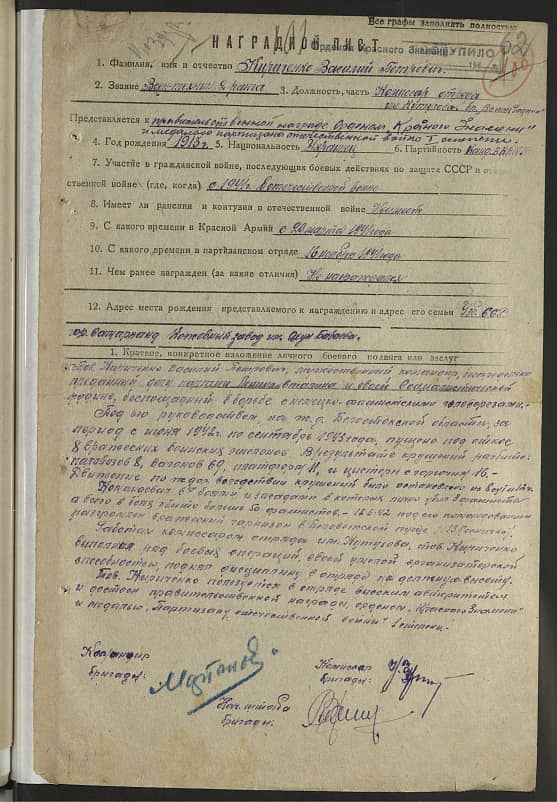 Все графы заполнять полностью
НАГРАДНОЙ ЛИСТ
Орденом Красного Знамени
СТУПИЛО
62
1. Фамилия, имя и отчество Кириченко Василий Петрович.
2. Звание Воентехник 2 ранга 3. Должность, часть Комиссар отряда
им. Кутузова
Представляется к правительственной награде Орденом "Красного Знамени"
и медалью партизана отечественной войны степени.
4. Год рождения 1913г. 5. Национальность Украинец 6. Партийность Канд.
7. Участие в гражданской войне, последующих боевых действиях по защите СССР и отече-
ственной войне (где, когда) с 1941г. В отечественной войне
8. Имеет ли ранения и контузии в отечественной войне
9. С какого времени в Красной Армии с 20 марта 1941 года
10. С какого времени в партизанском отряде 16 ноября 1941 года
11. Чем ранее награжден (за какие отличия) Не награждался
12. Адрес места рождения представляемого к награждению и адрес его семьи
гор. завод им.
1. Краткое, конкретное изложение личного боевого подвига или заслуг
Тов. Кириченко Василий Петрович, командир,
преданный делу партии Ленина-Сталина и своей Социалистической
родине, беспощадный в борьбе с немецко-фашистскими головорезами.-
Под его руководством, на ж.д. Белостокской области, за
период с июня 1942г. по сентябрь 1943 года, пущено под откос
8 вражеских воинских эшелонов. В результате крушений разбито:
паровозов 8, вагонов 69, платформ 11, и цистерн с горючим 16.-
Движение по ж.д. вследствии крушений было остановлено на
боях и засадах в которых лично убил фашиста
а всего в боях убито больше 50 фашистов.- 12.5.42 под его командованием
разгромлен вражеский гарнизон в Беловежской пуще
Работая комиссаром отряда им. Кутузова, тов. Кириченко
выполнял ряд боевых операций, своей умелой организаторской
способностью, поднял дисциплину в отряде на должную высоту.
Тов. Кириченко пользуется в отряде высоким авторитетом
и достоин правительственной награды, орденом "Красного Знамени"
и медалью "Партизану отечественной войны" степени.-
Командир
бригады:
Комиссар
бригады:
Нач. штаба
бригады: